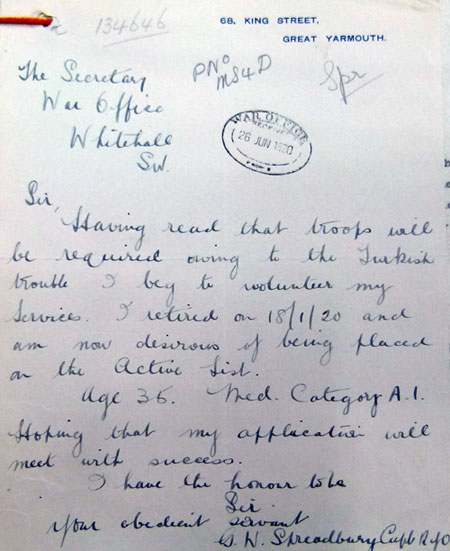 134646
68, KING STREET,
GREAT YARMOUTH.
The Secretary
War Office
Whitehall
SW.
PNo
MS4D
Spr
WAR OFFICE
26 JUN 1920
Sir,
Having read that troops will
be required owing to the Turkish
trouble I beg to volunteer my
services. I retired on 18/1/20 and
am now desirous of being placed
on the Active List.
Age 36. Med. Category A.1.
Hoping that my application will
meet with success.
I have the honour to be
Sir
your obedient servant
W. Spreadbury Capt